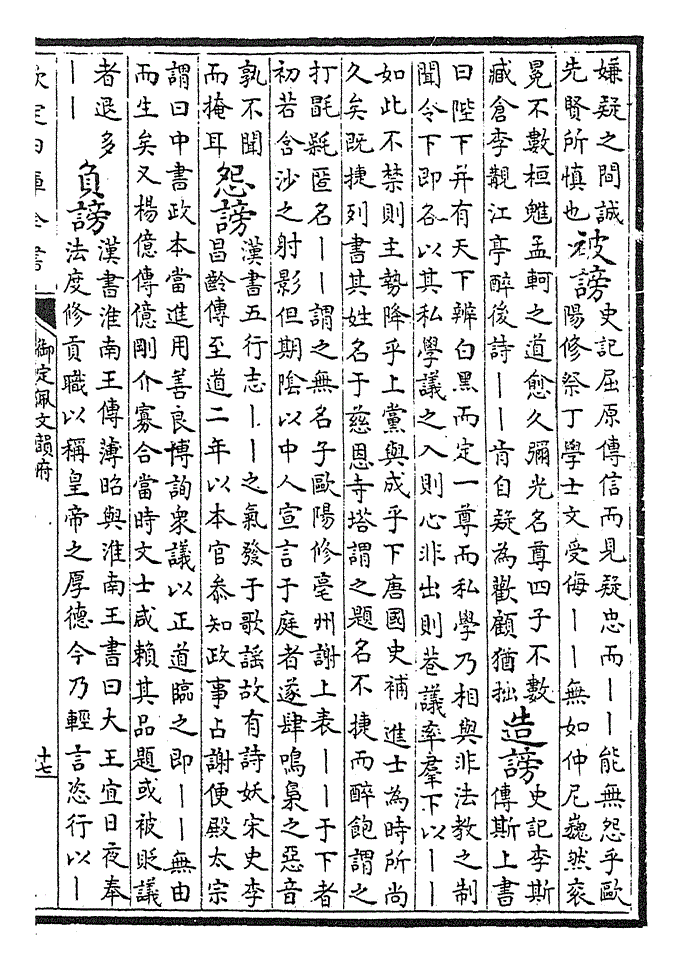 嫌疑之間誠
先賢所慎也
被謗
史記屈原傳信而見疑忠而丨丨能無怨乎歐
陽修祭丁學士文受侮丨丨無如仲尼巍然衮
冕不數桓魋孟軻之道愈久彌光名尊四子不數
臧倉李覯江亭醉後詩丨丨肯自疑為歡顧猶拙
造謗
史記李斯
傳斯上書
曰陛下并有天下辨白黑而定一尊而私學乃相與非法教之制
聞令下即各以其私學議之入則心非出則巷議率羣下以丨丨
如此不禁則主勢降乎上黨與成乎下唐國史補 進士為時所尚
久矣既捷列書其姓名于慈恩寺塔謂之題名不捷而醉飽謂之
打毷氉匿名丨丨謂之無名子歐陽修亳州謝上表丨丨于下者
初若含沙之射影但期陰以中人宣言于庭者遂肆鳴梟之惡音
孰不聞
而掩耳
怨謗
漢書五行志丨丨之氣發于歌謠故有詩妖宋史李
昌齡傳至道二年以本官叅知政事占謝便殿太宗
謂曰中書政本當進用善良博詢衆議以正道臨之即丨丨無由
而生矣又楊億傳億剛介寡合當時文士咸賴其品題或被貶議
者退多
丨丨
負謗
漢書淮南王傳薄昭與淮南王書曰大王宜日夜奉
法度修貢職以稱皇帝之厚德今乃輕言恣行以丨
欽定四庫全書
御定佩文韻府
十七